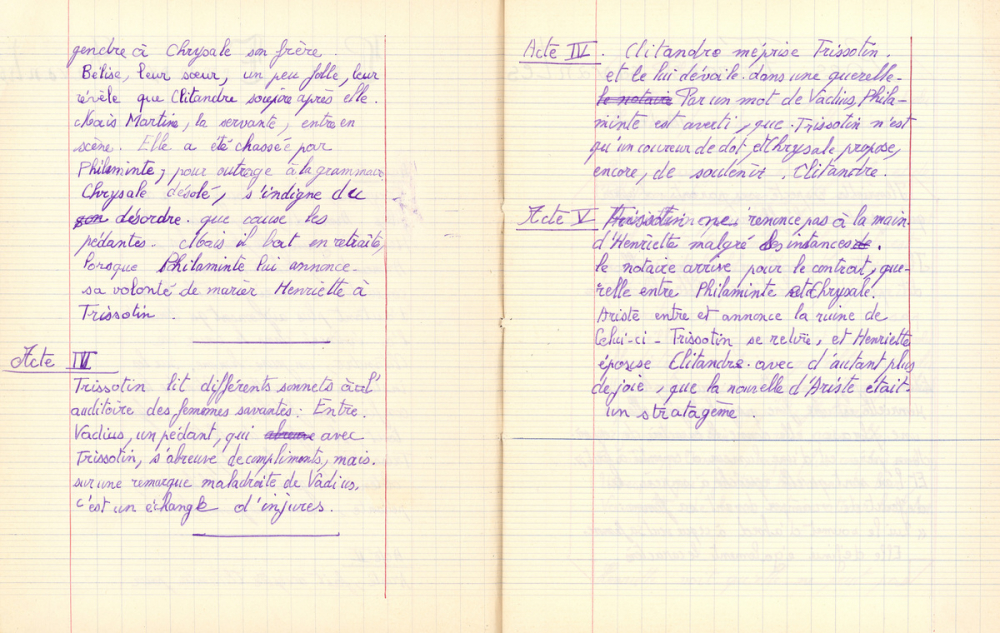 gendre à Chrysale son frère.
Bélise, leur sœur, un peu folle, leur
révèle que Clitandre soupire après elle.
Mais Martine, la servante, entre en
scène. Elle a été chassée par
Philaminte, pour outrage à la grammaire
Chrysale désolé, s'indigne du
son désordre. que cause les
pédantes. Mais il bat en retraite,
lorsque Philaminte lui annonce
sa volonté de marier Henriette à
Trissotin.
Acte III
Trissotin lit différents sonnets à l'
auditoire des femmes savantes: Entre.
Vadius, un pédant, qui abreuve avec
Trissotin, s'abreuve de compliments, mais.
sur une remarque maladroite de Vadius.
c'est un échange d'injures.
Acte IV. Clitandre méprise Trissotin.
et le lui dévoile dans une querelle-
le notaire Par un mot de Vadius, Phila-
minte est averti, que Trissotin n'est
qu'un coureur de dot, et Chrysale propose,
encore, de soutenir. Clitandre.
Acte V Trissotin ne renonce pas à la main
d'Henriette malgré les instances de.
le notaire arrive pour le contrat, que-
relle entre Philaminte et Chrysale.
Ariste entre et annonce la ruine de
Celui-ci - Trissotin se retire, et Henriette
épouse Clitandre. avec d'autant plus
de joie, que la nouvelle d'Ariste était-
un stratagème.